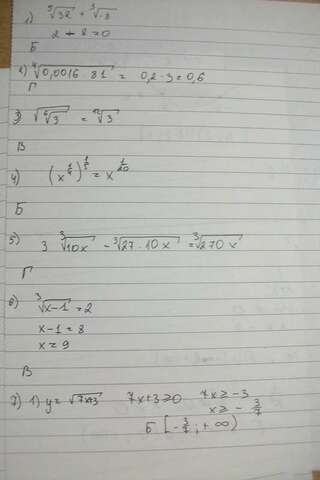 1) ⁵√32 + ³√-8
2 + 2 = 0
Б
2) ⁴√0,0016 · 81 = 0,2 · 3 = 0,6
Г
3) √⁶√3 = ¹²√3
В
4) (x^(1/4))^(1/5) = x^(1/20)
Б
5) 3 ³√10x = ³√27 · 10x = ³√270x
Г
6) ³√x-1 = 2
x - 1 = 8
x = 9
В
7) 1) y = √7x+3 7x+3≥0 7x ≥ -3
x ≥ - 3/7
Б [-3/7; +∞)